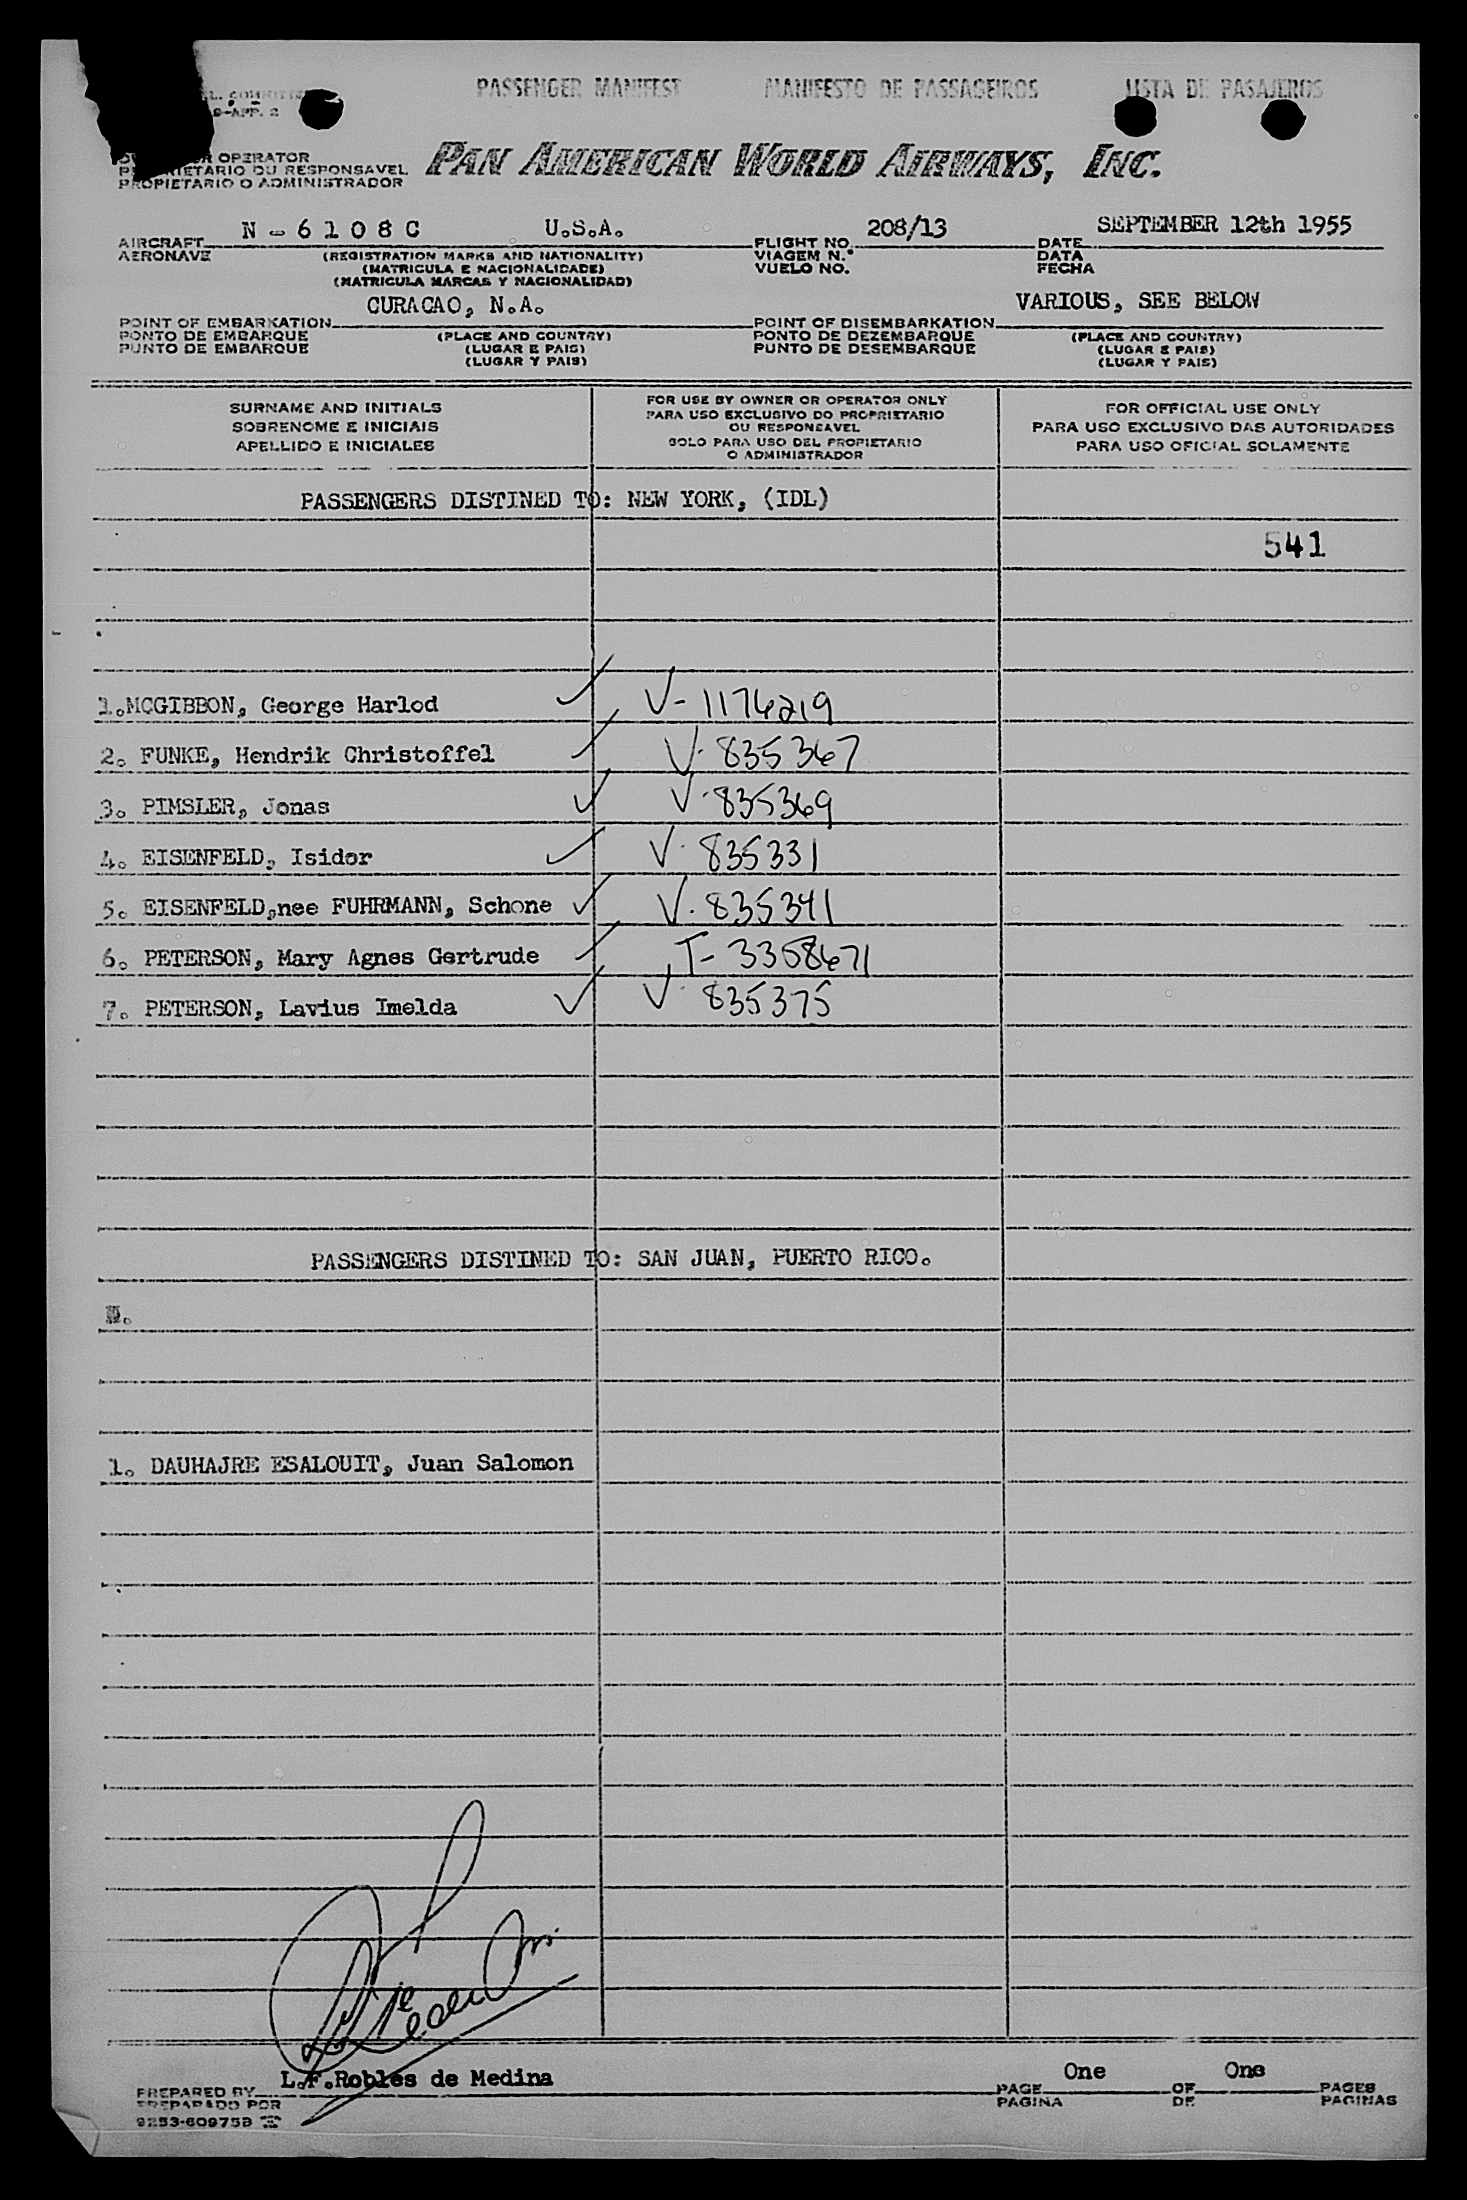 PASSENGER MANIFEST MANIFESTO DE PASSAGEIROS LISTA DE PASAJEROS
APP. 2
OPERATOR
OU RESPONSAVEL
PROPIETARIO O ADMINISTRADOR
PAN AMERICAN WORLD AIRWAYS, INC.
AIRCRAFT N - 6 1 0 8 C U.S.A. FLIGHT NO. 208/13 DATE SEPTEMBER 12th 1955
AERONAVE (REGISTRATION MARKS AND NATIONALITY) VIAGEM N.º DATA
(MATRICULA E NACIONALIDADE) VUELO NO. FECHA
(MATRICULA MARCAS Y NACIONALIDAD)
POINT OF EMBARKATION CURACAO, N.A. POINT OF DISEMBARKATION VARIOUS, SEE BELOW
PONTO DE EMBARQUE (PLACE AND COUNTRY) PONTO DE DEZEMBARQUE (PLACE AND COUNTRY)
PUNTO DE EMBARQUE (LUGAR E PAIS) PUNTO DE DESEMBARQUE (LUGAR E PAIS)
(LUGAR Y PAIS) (LUGAR Y PAIS)
SURNAME AND INITIALS
SOBRENOME E INICIAIS
APELLIDO E INICIALES
FOR USE BY OWNER OR OPERATOR ONLY
PARA USO EXCLUSIVO DO PROPRIETARIO
OU RESPONSAVEL
SOLO PARA USO DEL PROPIETARIO
O ADMINISTRADOR
FOR OFFICIAL USE ONLY
PARA USO EXCLUSIVO DAS AUTORIDADES
PARA USO OFICIAL SOLAMENTE
PASSENGERS DISTINED TO: NEW YORK, (IDL)
541
1.MCGIBBON, George Harlod V- 1176219
2. FUNKE, Hendrik Christoffel V- 835367
3. PIMSLER, Jonas V- 835369
4. EISENFELD, Isidor V- 835331
5. EISENFELD,nee FUHRMANN, Schone V- 835341
6. PETERSON, Mary Agnes Gertrude T- 3358671
7. PETERSON, Lavius Imelda V- 835375
PASSENGERS DISTINED TO: SAN JUAN, PUERTO RICO.
1. DAUHAJRE ESALOUIT, Juan Salomon
PREPARED BY L.F.Robles de Medina PAGE One OF One PAGES
PREPARADO POR PAGINA DE PAGINAS
9253-609758